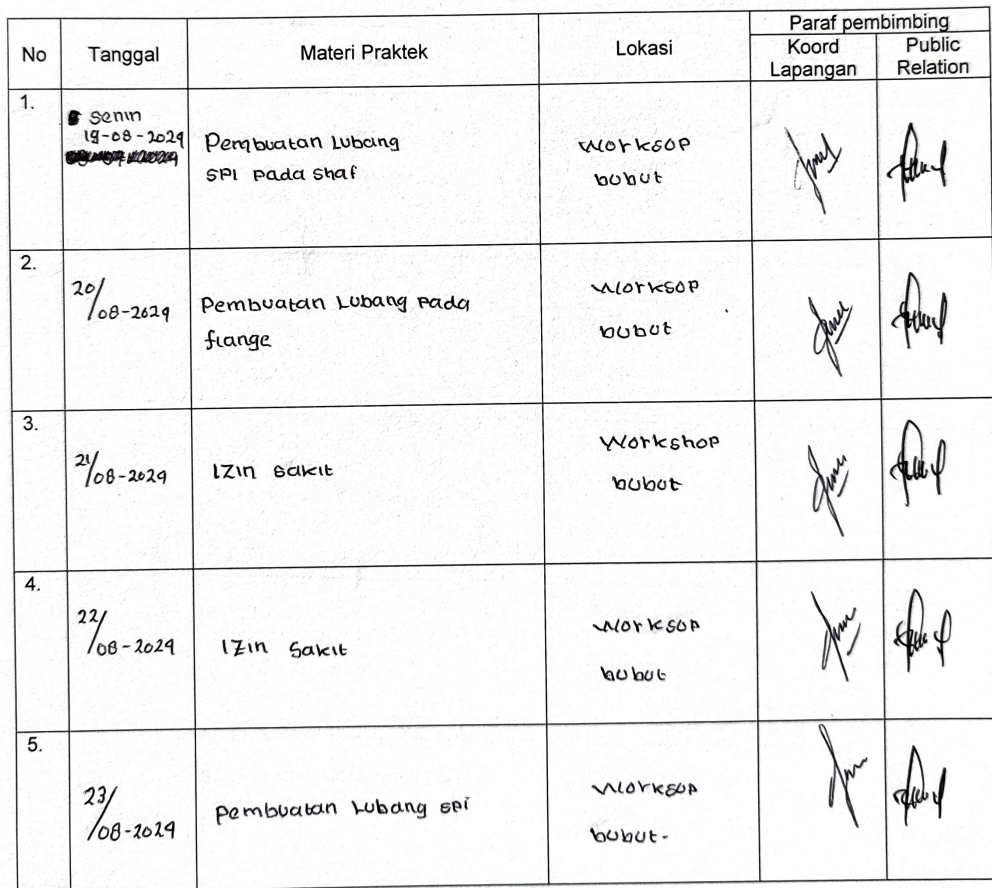 No Tanggal Materi Praktek Lokasi Paraf pembimbing
Koord Lapangan Public Relation
1.
Senin
19-08-2024
Pembuatan Lubang
SPI pada shaf
Worksop
bubut
2.
20/08-2024
Pembuatan Lubang pada
flange
Worksop
bubut
3.
21/08-2024
Izin sakit
Workshop
bubut
4.
22/08-2024
Izin Sakit
Worksop
bubut
5.
23/08-2024
Pembuatan Lubang spi
Worksop
bubut.